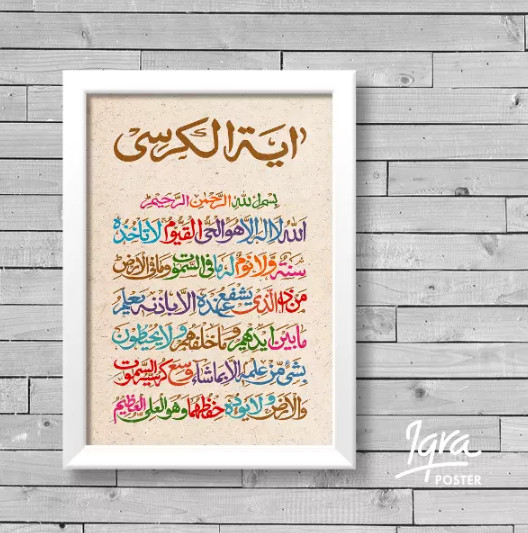 اية الكرسى
بسم الله الرحمن الرحيم
الله لا اله الا هو الحي القيوم لا تأخذه
سنة ولا نوم له ما في السموت وما في الارض
من ذا الذي يشفع عنده الا باذنه يعلم
ما بين ايديهم وما خلفهم ولا يحيطون
بشئ من علمه الا بما شاء وسع كرسيه السموت
والارض ولا يؤده حفظهما وهو العلي العظيم
Iqra
POSTER